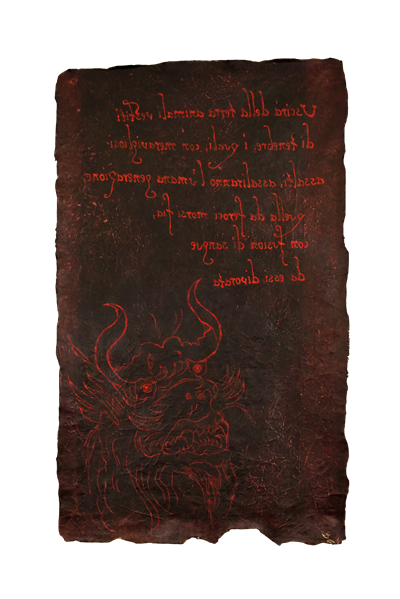 Uscirà della terra animali vestiti
di tenebre, i quali, con meravigliosi
assalti, assaliranno l'umana generazione,
quella da feroci morsi fia,
con fusion di sangue
da essi divorata